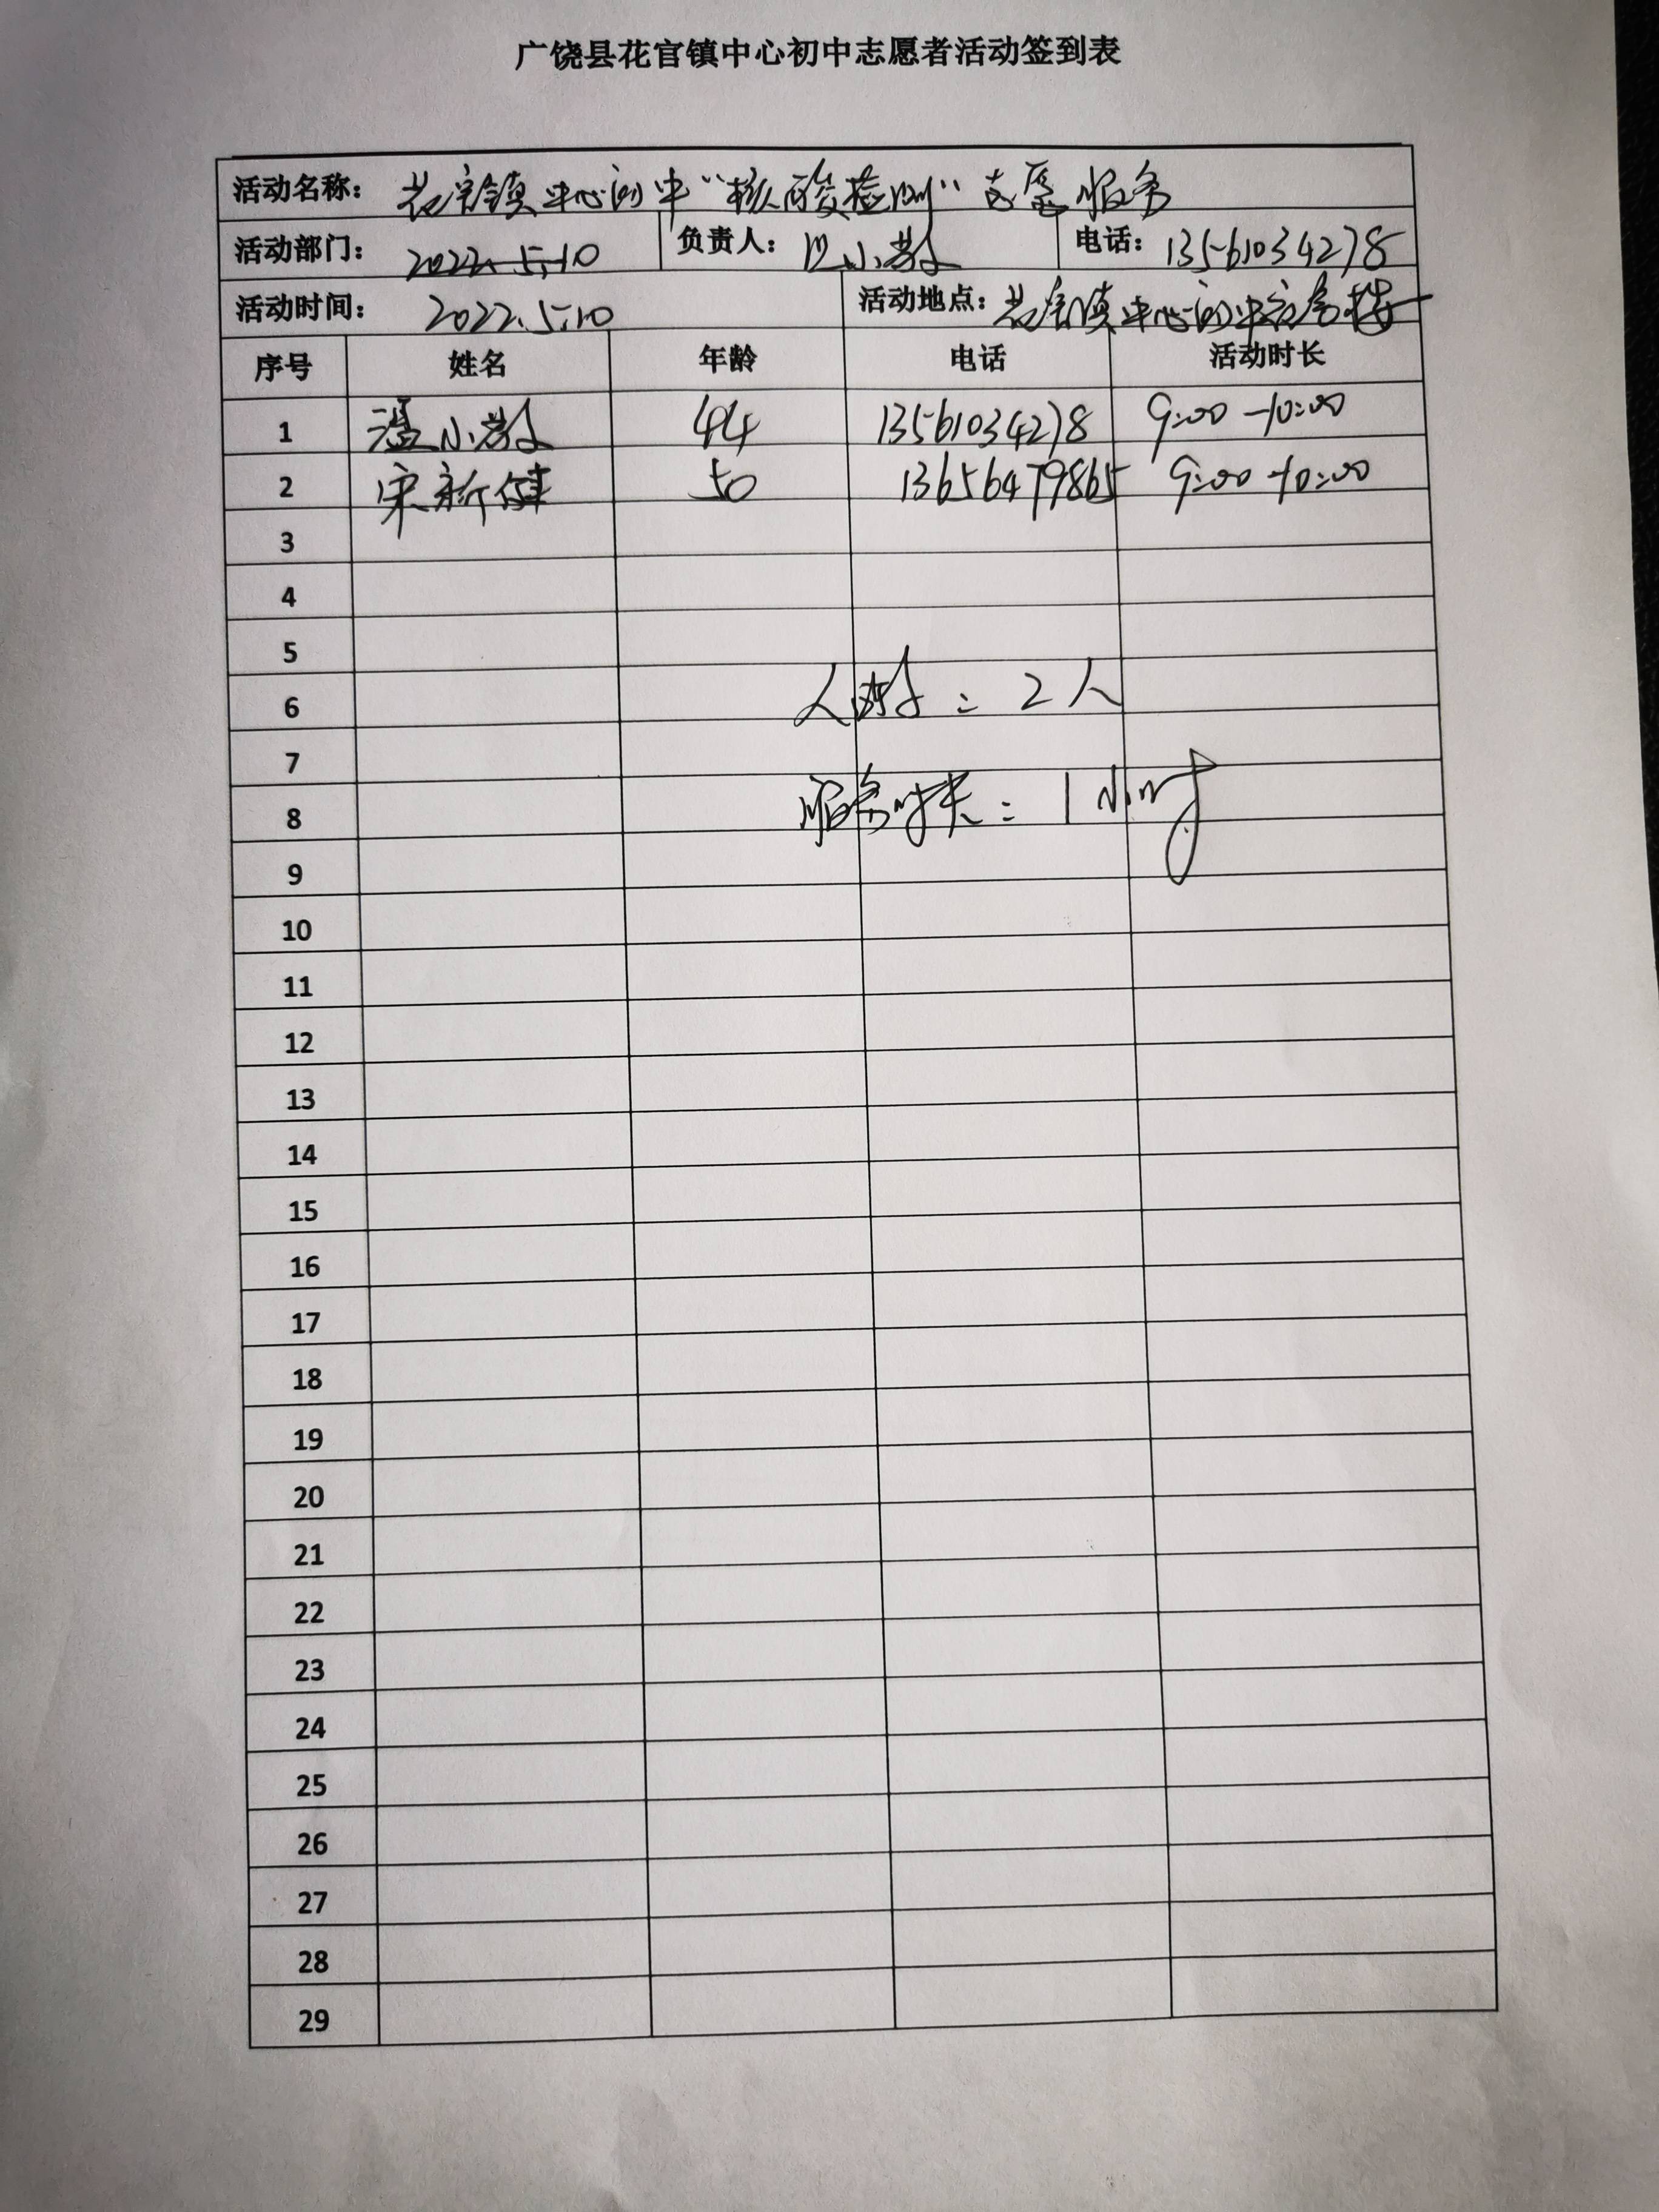 广饶县花官镇中心初中志愿者活动签到表
活动名称： 花官镇中心初中“核酸检测”志愿服务
活动部门： 2022.5.10 负责人： 小 电话：13561034278
活动时间： 2022.5.10 活动地点：花官镇中心初中宿舍楼
序号 姓名 年龄 电话 活动时长
1 小 44 13561034278 9:00-10:00
2 宋新 50 13656479865 9:00-10:00
3
4
5
6 人数：2人
7
8 服务时长：1小时
9
10
11
12
13
14
15
16
17
18
19
20
21
22
23
24
25
26
27
28
29